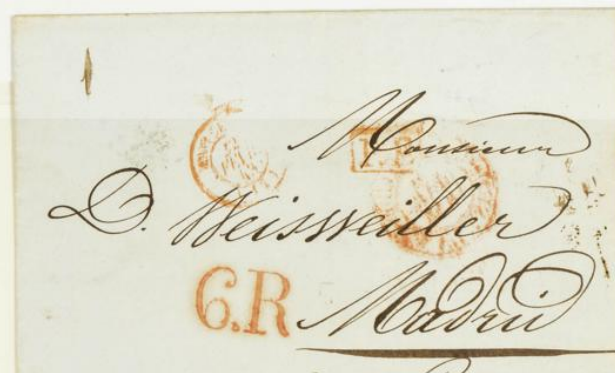 Monsieur
D. Weisweiller
6.R
Madrid